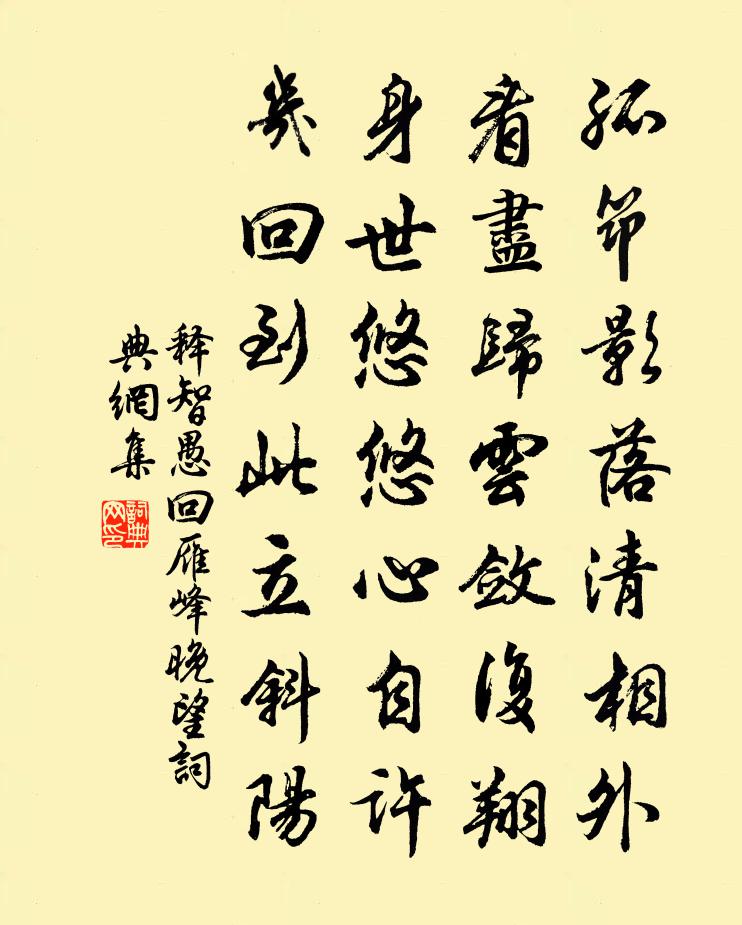 孤筇影落清相外
看盡歸雲斂復翔
身世悠悠心自許
幾回到此立斜陽
释智愚回雁峰晚望詞
典網集
詞典
网印